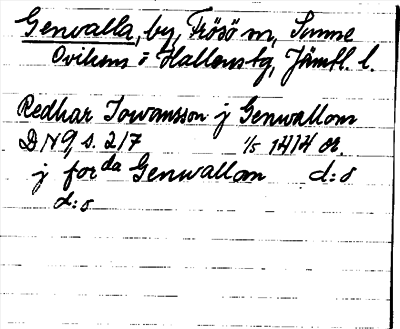 Genvalla, by, Frösö sn, Sunne
Ovikens o Hallens tg, Jämtl. l.
Redhar Iowansson j Genwallom
DN 9, s. 217 1/5 1414 or.
j forda Genwallom d:o
d:o